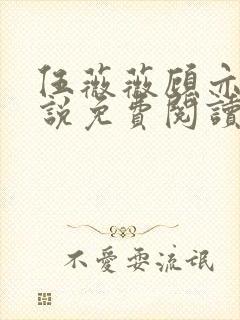 伍薇薇顾亦
說免費閱讀
不愛耍流氓